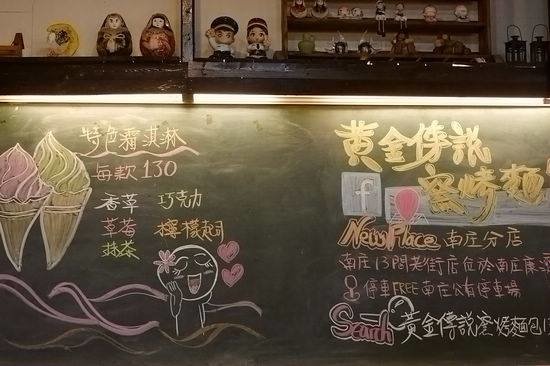 特色霜淇淋
每款130
香草 巧克力
草莓 檸檬起司
抹茶
黃金傳說
窯烤麵
f
New Place 南庄分店
南庄13間老街店位於南庄廉
停車FREE南庄公有停車場
Search 黃金傳說窯烤麵包